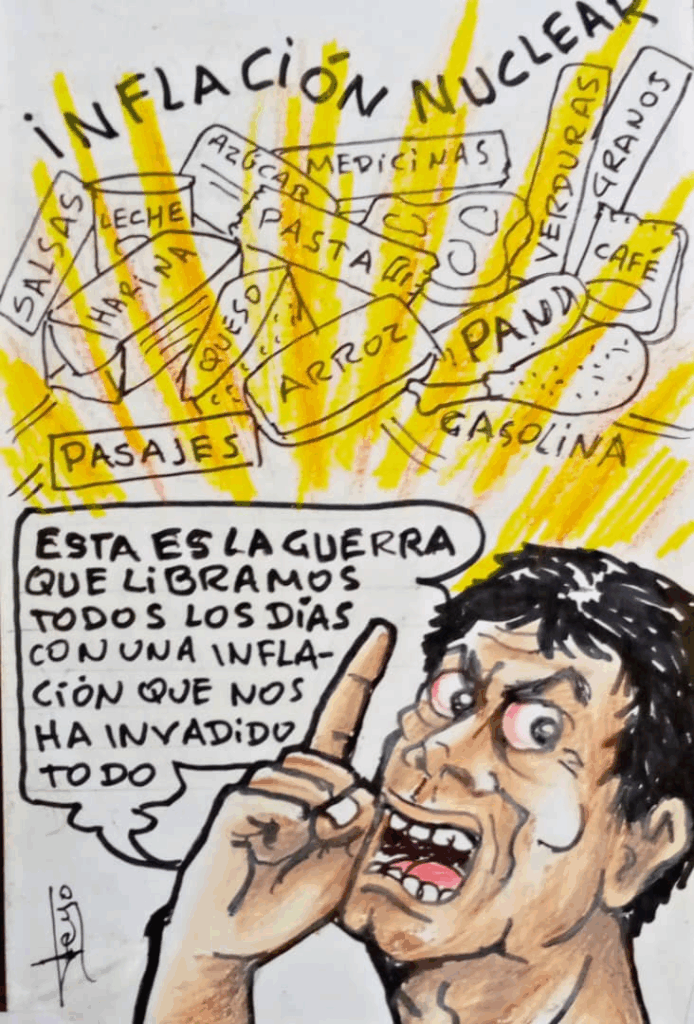 iNFLACiÓN NUCLEAR
AZÚCAR
MEDiCiNAS
VERDURAS
GRANOS
SALSAS
LECHE
PASTA
CAFÉ
HARINA
QUESO
ARROZ
PAND
GASOLINA
PASAJES
ESTA ES LA GUERRA
QUE LiBRAMOS
TODOS LOS DÍAS
CON UNA INFLA-
CIÓN QUE NOS
HA INVADiDO
TODO